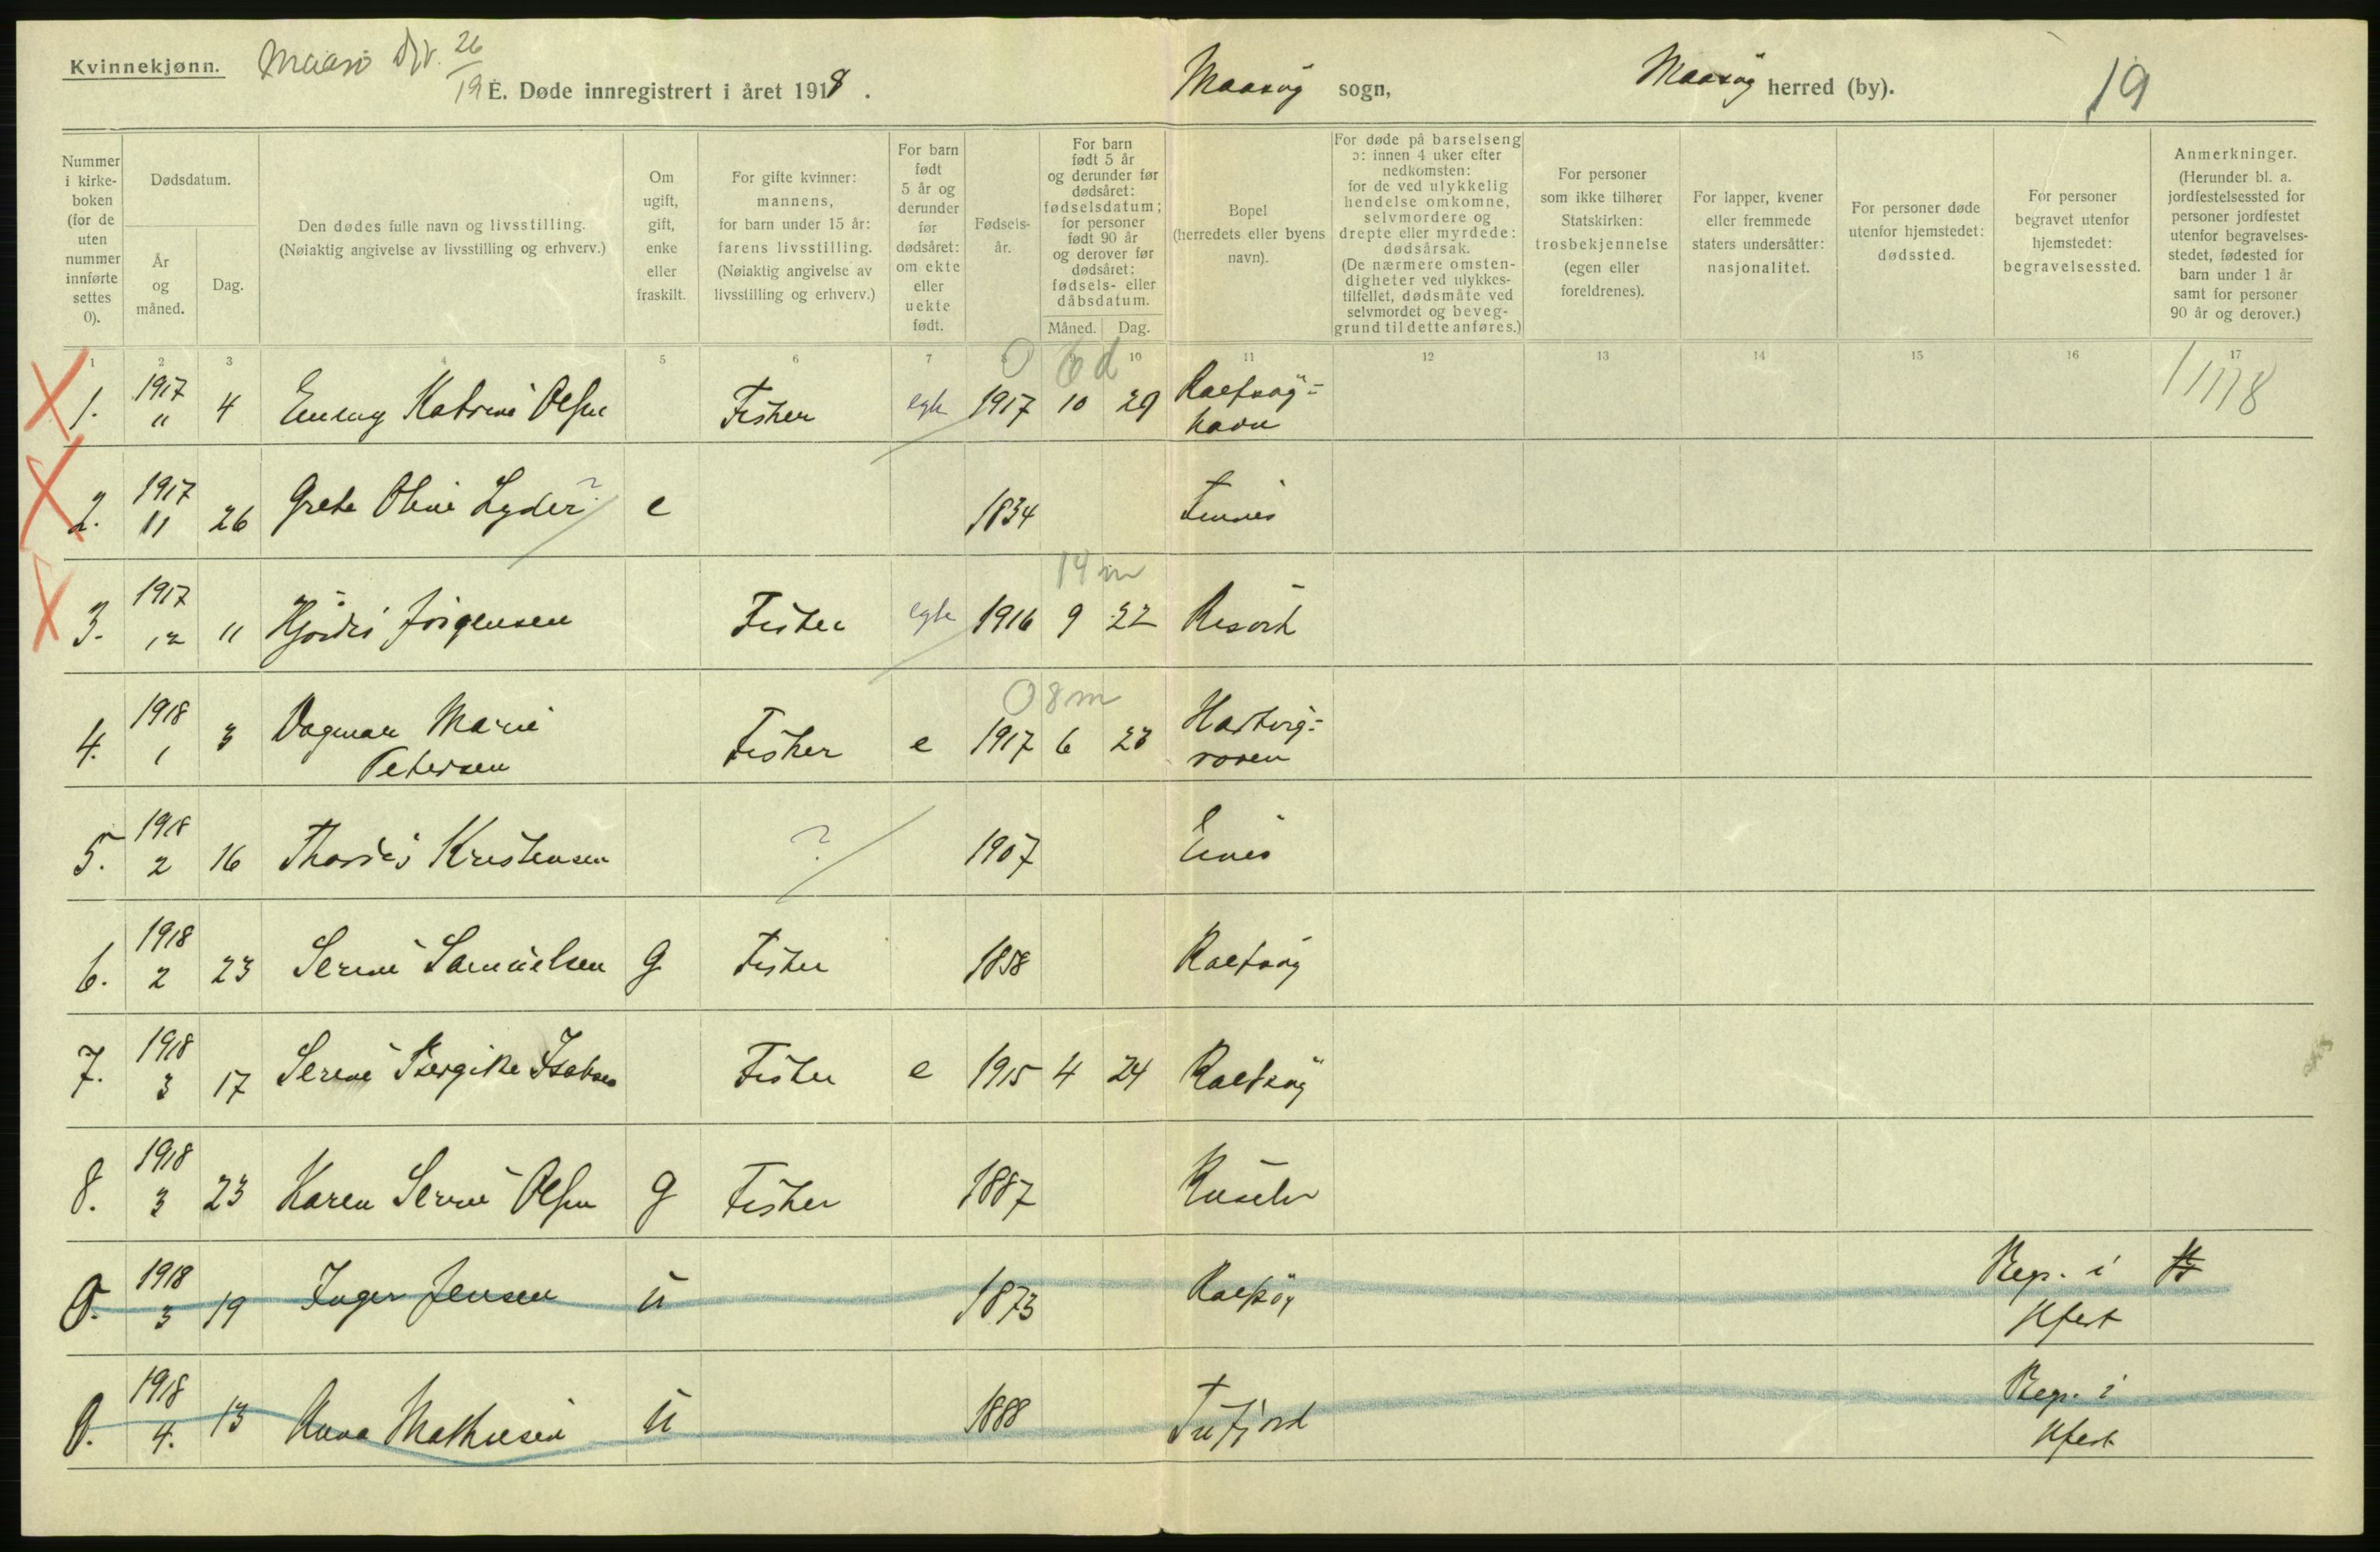 Kvinnekjønn.
Maasø Djv. 26/19
E. Døde innregistrert i året 1918.
Maasöy sogn,
Maasöy herred (by).
19
Nummer i kirke-boken (for de uten nummer innførte settes 0).
Dødsdatum.
År og måned.
Dag.
Den dødes fulle navn og livsstilling.
(Nøiaktig angivelse av livsstilling og erhverv.)
Om ugift, gift, enke eller fraskilt.
For gifte kvinner: mannens, for barn under 15 år: farens livsstilling. (Nøiaktig angivelse av livsstilling og erhverv.)
For barn født 5 år og derunder før dødsåret: om ekte eller uekte født.
Fødsels-år.
For barn født 5 år og derunder før dødsåret: fødselsdatum; for personer født 90 år og derover før dødsåret: fødsels- eller dåbsdatum.
Måned. Dag.
Bopel (herredets eller byens navn).
For døde på barselseng ɔ: innen 4 uker efter nedkomsten: for de ved ulykkelig hendelse omkomne, selvmordere og drepte eller myrdede: dødsårsak. (De nærmere omsten-digheter ved ulykkes-tilfellet, dødsmåte ved selvmordet og beveg-grund til dette anføres.)
For personer som ikke tilhører Statskirken: trosbekjennelse (egen eller foreldrenes).
For lapper, kvener eller fremmede staters undersåtter: nasjonalitet.
For personer døde utenfor hjemstedet: dødssted.
For personer begravet utenfor hjemstedet: begravelsessted.
Anmerkninger. (Herunder bl. a. jordfestelsessted for personer jordfestet utenfor begravelses-stedet, fødested for barn under 1 år samt for personer 90 år og derover.)
1 2 3 4 5 6 7 8 9 10 11 12 13 14 15 16 17
0 6 d
1. 1917 11 4 Emmy Katrine Olsen Fisker egte 1917 10 29 Rolfsöy=havn
2. 1917 11 26 Grete Oline Lyder ? e 1834 Finnes
14 m
3. 1917 12 11 Hjördis Jörgensen Fisker egte 1916 9 22 Russvik
0 8 m
4. 1918 1 3 Dagmar Marie Petersen Fisker e 1917 6 23 Hartvig=
5. 1918 2 16 Thordis Kristensen ? 1907
6. 1918 2 23 Serine Samuelsen g Fisker 1858 Rolfsöy
7. 1918 3 17 Serine Bergitte Isaksen Fisker e 1915 4 24 Rolfsöy
8. 1918 3 23 Karen Serine Olsen g Fisker 1887
0. 1918 3 19 Inger Jensen u 1873 Rolfsöy Begr. i Hfest
0. 1918 4. 13 Anna Mathisen u 1888 Tufjord Begr. i Hfest